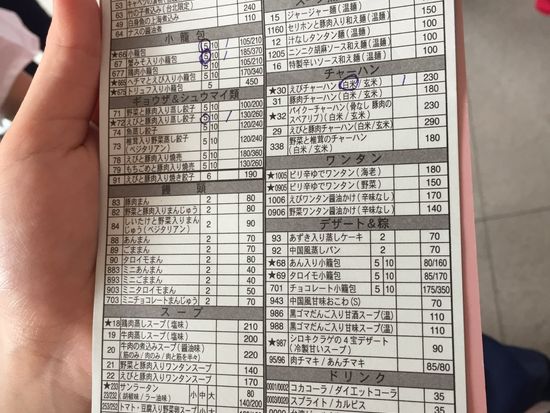 53
63 竹の子煮込み(台北限定) 110
49 白身魚の上海煮込み 240
64 ナスの醤油煮 110
小籠包
★66 小籠包 5 10 1 105/210
★67 蟹みそ入り小籠包 5 10 1 185/370
677 鶏肉小籠包 5 10 105/210
★669 ヘチマとえび入り小籠包 5 10 170/340
★675 トリュフ入り小籠包 5 450
ギョウザ&シュウマイ類
71 野菜と豚肉入り蒸し餃子 5 10 100/200
★72 えびと豚肉入り蒸し餃子 5 10 1 130/260
74 魚蒸し餃子 5 10 120/240
73 椎茸入り野菜蒸し餃子(ベジタリアン) 5 10 120/240
78 えびと豚肉入り焼売 5 10 170/340
79 もちごめと豚肉入り焼売 5 10 130/260
91 えびと豚肉入り焼き餃子 6 190
饅頭
83 豚肉まん 2 80
82 野菜と豚肉入りまんじゅう 2 80
84 しいたけと野菜入りまんじゅう(ベジタリアン) 2 90
88 あんまん 2 70
89 ごままん 2 70
90 タロイモまん 2 70
883 ミニあんまん 2 40
893 ミニごままん 2 40
903 ミニタロイモまん 2 50
703 ミニチョコレートまんじゅう 2 70
スープ
★18 鶏肉蒸しスープ(塩味) 210
19 牛肉蒸しスープ(塩味) 200
20 牛肉の煮込みスープ(醤油味)(筋のみ/肉のみ/肉と筋を半々) 220
21 野菜と豚肉入りワンタンスープ
22 えびと豚肉入りワンタンスープ
サンラータン(胡椒味/ラー油味) 小 中 大
トマト・豆腐入り野菜卵スープ 小
15 ジャージャー麺(温麺) 100
1160 セリホンと豚肉入り和え麺(温麺)
12 汁なしタンタン麺(温麺)
1205 ニンニク胡麻ソース和え麺(温麺) 100
16 特製辛いソース和え麺(温麺)
チャーハン
★30 えびチャーハン(白米/玄米) 1 230
31 豚肉チャーハン(白米/玄米) 180
★32 パイクーチャーハン(骨なし豚肉のスペアリブ)(白米/玄米)
29 えびと豚肉チャーハン(白米/玄米) 290
338 野菜と椎茸のチャーハン(白米/玄米)
ワンタン
★1005 ピリ辛ゆでワンタン(海老) 170
★0905 ピリ辛ゆでワンタン(野菜) 150
1006 えびワンタン醤油かけ(辛味なし) 170
0906 野菜ワンタン醤油かけ(辛味なし) 140
デザート&粽
93 あずき入り蒸しケーキ 2 70
92 中国風蒸しパン 2 70
★68 あん入り小籠包 5 10 80/160
★69 タロイモ小籠包 5 10 85/170
701 チョコレート小籠包 5 10 175/350
943 中国風甘味おこわ(S) 70
986 黒ゴマだんご入り甘酒スープ(温) 110
988 黒ゴマだんご入り甘味スープ(温) 110
★987 シロキクラゲの4宝デザート(冷製甘いスープ) 90
95/96 肉チマキ/あんチマキ 85/80
ドリンク
0001/0002 コカコーラ/ダイエットコーラ 35
0003/0020 スプライト/カルピス 35